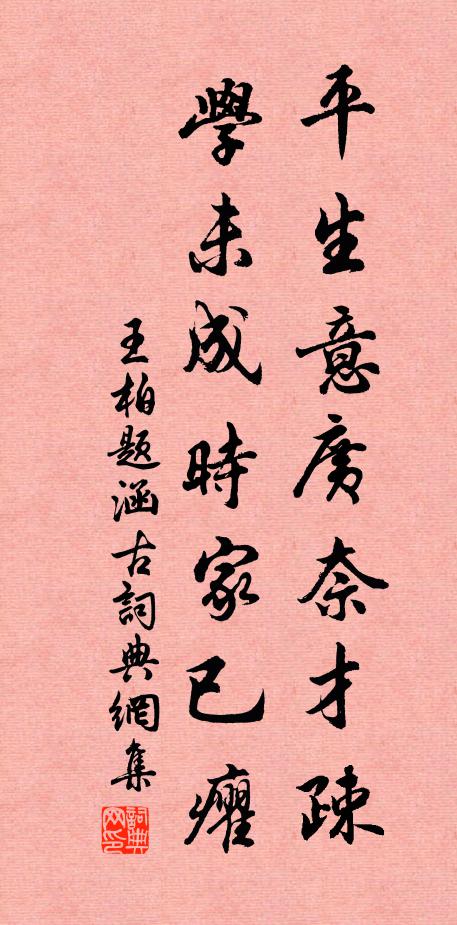 平生意廣奈才疎
學未成時家已癯
王柏題涵古詞典網集
詞典网印